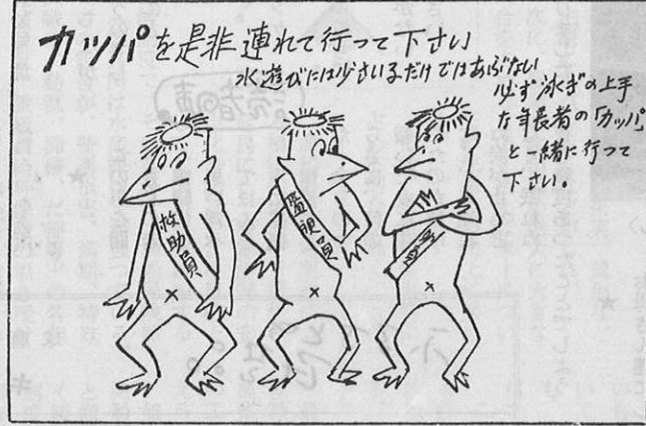 カッパを是非連れて行って下さい
水遊びには少さい子だけではあぶない
必ず泳ぎの上手
な年長者の「カッパ」
と一緒に行って
下さい。
救助員
監視員